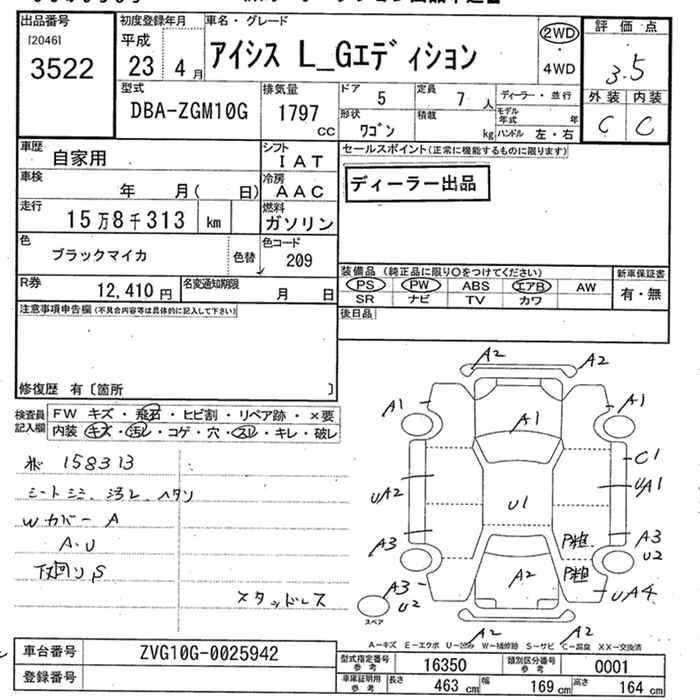 出品番号 初度登録年月 車名・グレード 評価点
[2046] 平成 2WD
3522 23 4月 アイシス L_Gエディション ・ 3.5
4WD
型式 排気量 ドア 5 定員 7人 ディーラー・並行 外装 内装
DBA-ZGM10G 1797cc 形状 ワゴン 積載 kg モデル年式 年 C C
ハンドル 左・右
車歴 自家用 シフト IAT セールスポイント(正常に機能するものに限ります)
車検 年 月( 日) 冷房 AAC ディーラー出品
走行 15万8千313 km 燃料 ガソリン
色 ブラックマイカ 色替 色コード 209
装備品(純正品に限り○をつけてください) 新車保証書
R券 12,410円 名変通知期限 月 日 PS PW ABS エアB AW 有・無
SR ナビ TV カワ
注意事項申告欄(不具合内容等は具体的に記入して下さい) 後日品
修復歴 有〔箇所 〕
検査員記入欄 FW キズ・飛石・ヒビ割・リペア跡・×要
内装 キズ・汚レ・コゲ・穴・スレ・キレ・破レ
158313
シートシミ、汚レ、ヘタリ
Wカバー A
A・U
下回りS
スタッドレス
A2 A2
A1 A1 A1
C1
UA2 U1 UA1
A3 P粗 A3
U2
A3 A2 P粗 UA4
U2
スペア
A2 A2
A-キズ E-エクボ U-凹み W-補修跡 S-サビ C-腐食 XX-交換済
車台番号 ZVG10G-0025942
型式指定番号 参考 16350 類別区分番号 参考 0001
登録番号
車庫証明用 参考 長さ 463 cm 幅 169 cm 高さ 164 cm